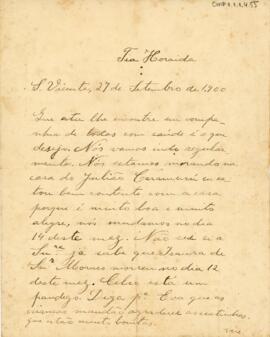 Tia Horaida
S. Vicente, 27 de Setembro de 1900
Que esta lhe encontre em compa-
nhia de todos com saúde é o que
desejo. Nós vamos indo regular
mente. Nós estamos morando na
casa do Julião Caramurú es
tou bem contente com a casa
porque é muito boa e muito
alegre, nós mudamos no dia
14 deste mez. Não sei si a
Snra. já sabe que Isaura de
Snr. Moraes morreu no dia 12
deste mez. Celso está um
pandego. Diga pa. Eva que as
manda agradecer as continhas
que são muito bonitas.